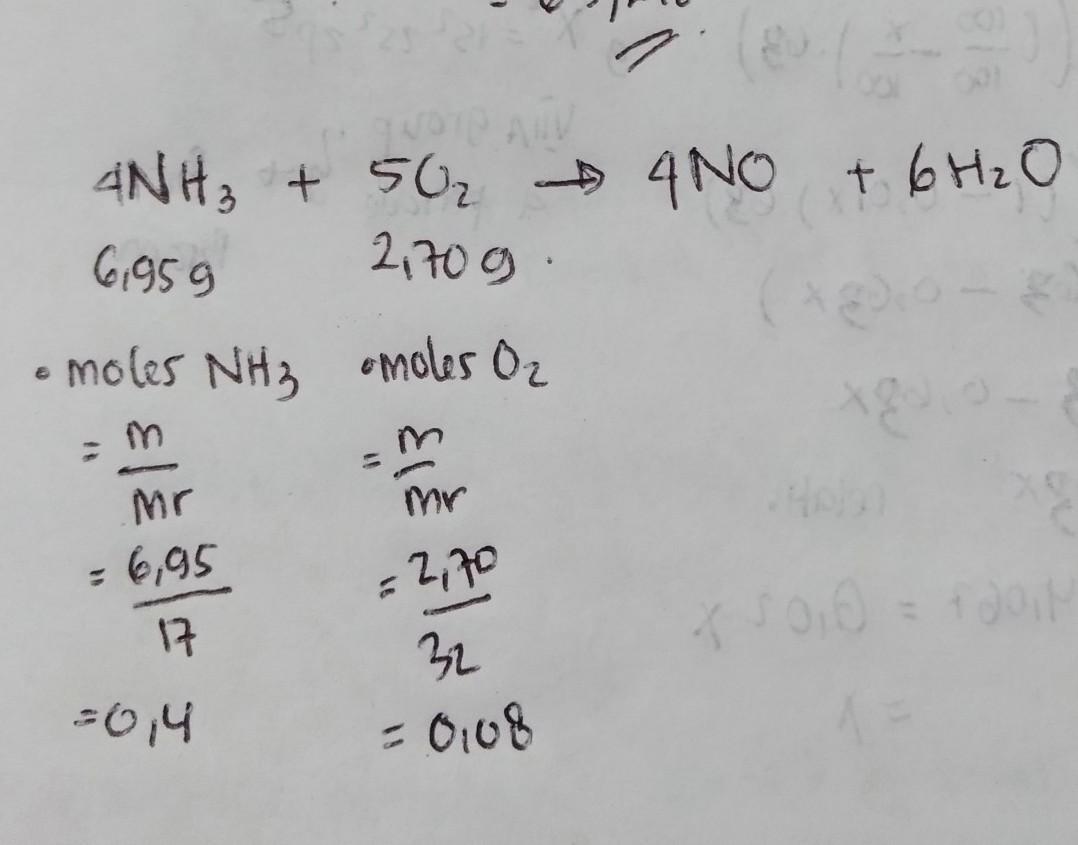 4NH₃ + 5O₂ → 4NO + 6H₂O
6,95g 2,70g.
• moles NH₃ • moles O₂
= m/Mr = m/mr
= 6,95/17 = 2,70/32
= 0,4 = 0,08